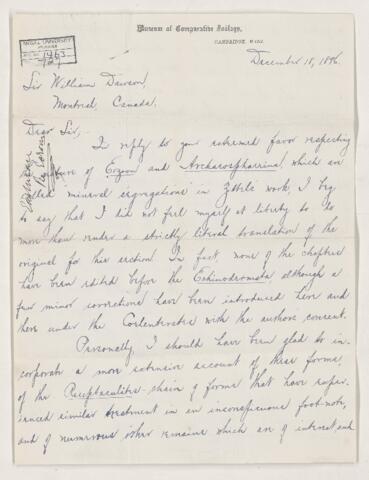 Museum of Comparative Zoölogy,
CAMBRIDGE, MASS.
McGILL UNIVERSITY
ARCHIVES
ACC. NO. 1463
REF.
December 18, 1896.
Sir William Dawson,
Montreal, Canada,
Dear Sir,—
In reply to your esteemed favor respecting
nature of Eozoon and Archaeospharina, which are
called mineral segregations in Zittel's work, I beg
to say that I did not feel myself at liberty to do
more than render a strictly literal translation of the
original for this section. In fact, none of the chapters
have been edited before the Echinodermata, although a
few minor corrections have been introduced here and
there under the Coelenterates with the authors consent.
Personally, I should have been glad to in-
corporate a more extensive account of these forms,
of the Receptaculites-chain of forms that have exper-
ienced similar treatment in an inconspicuous foot-note,
and of numerous other remains which are of interest and